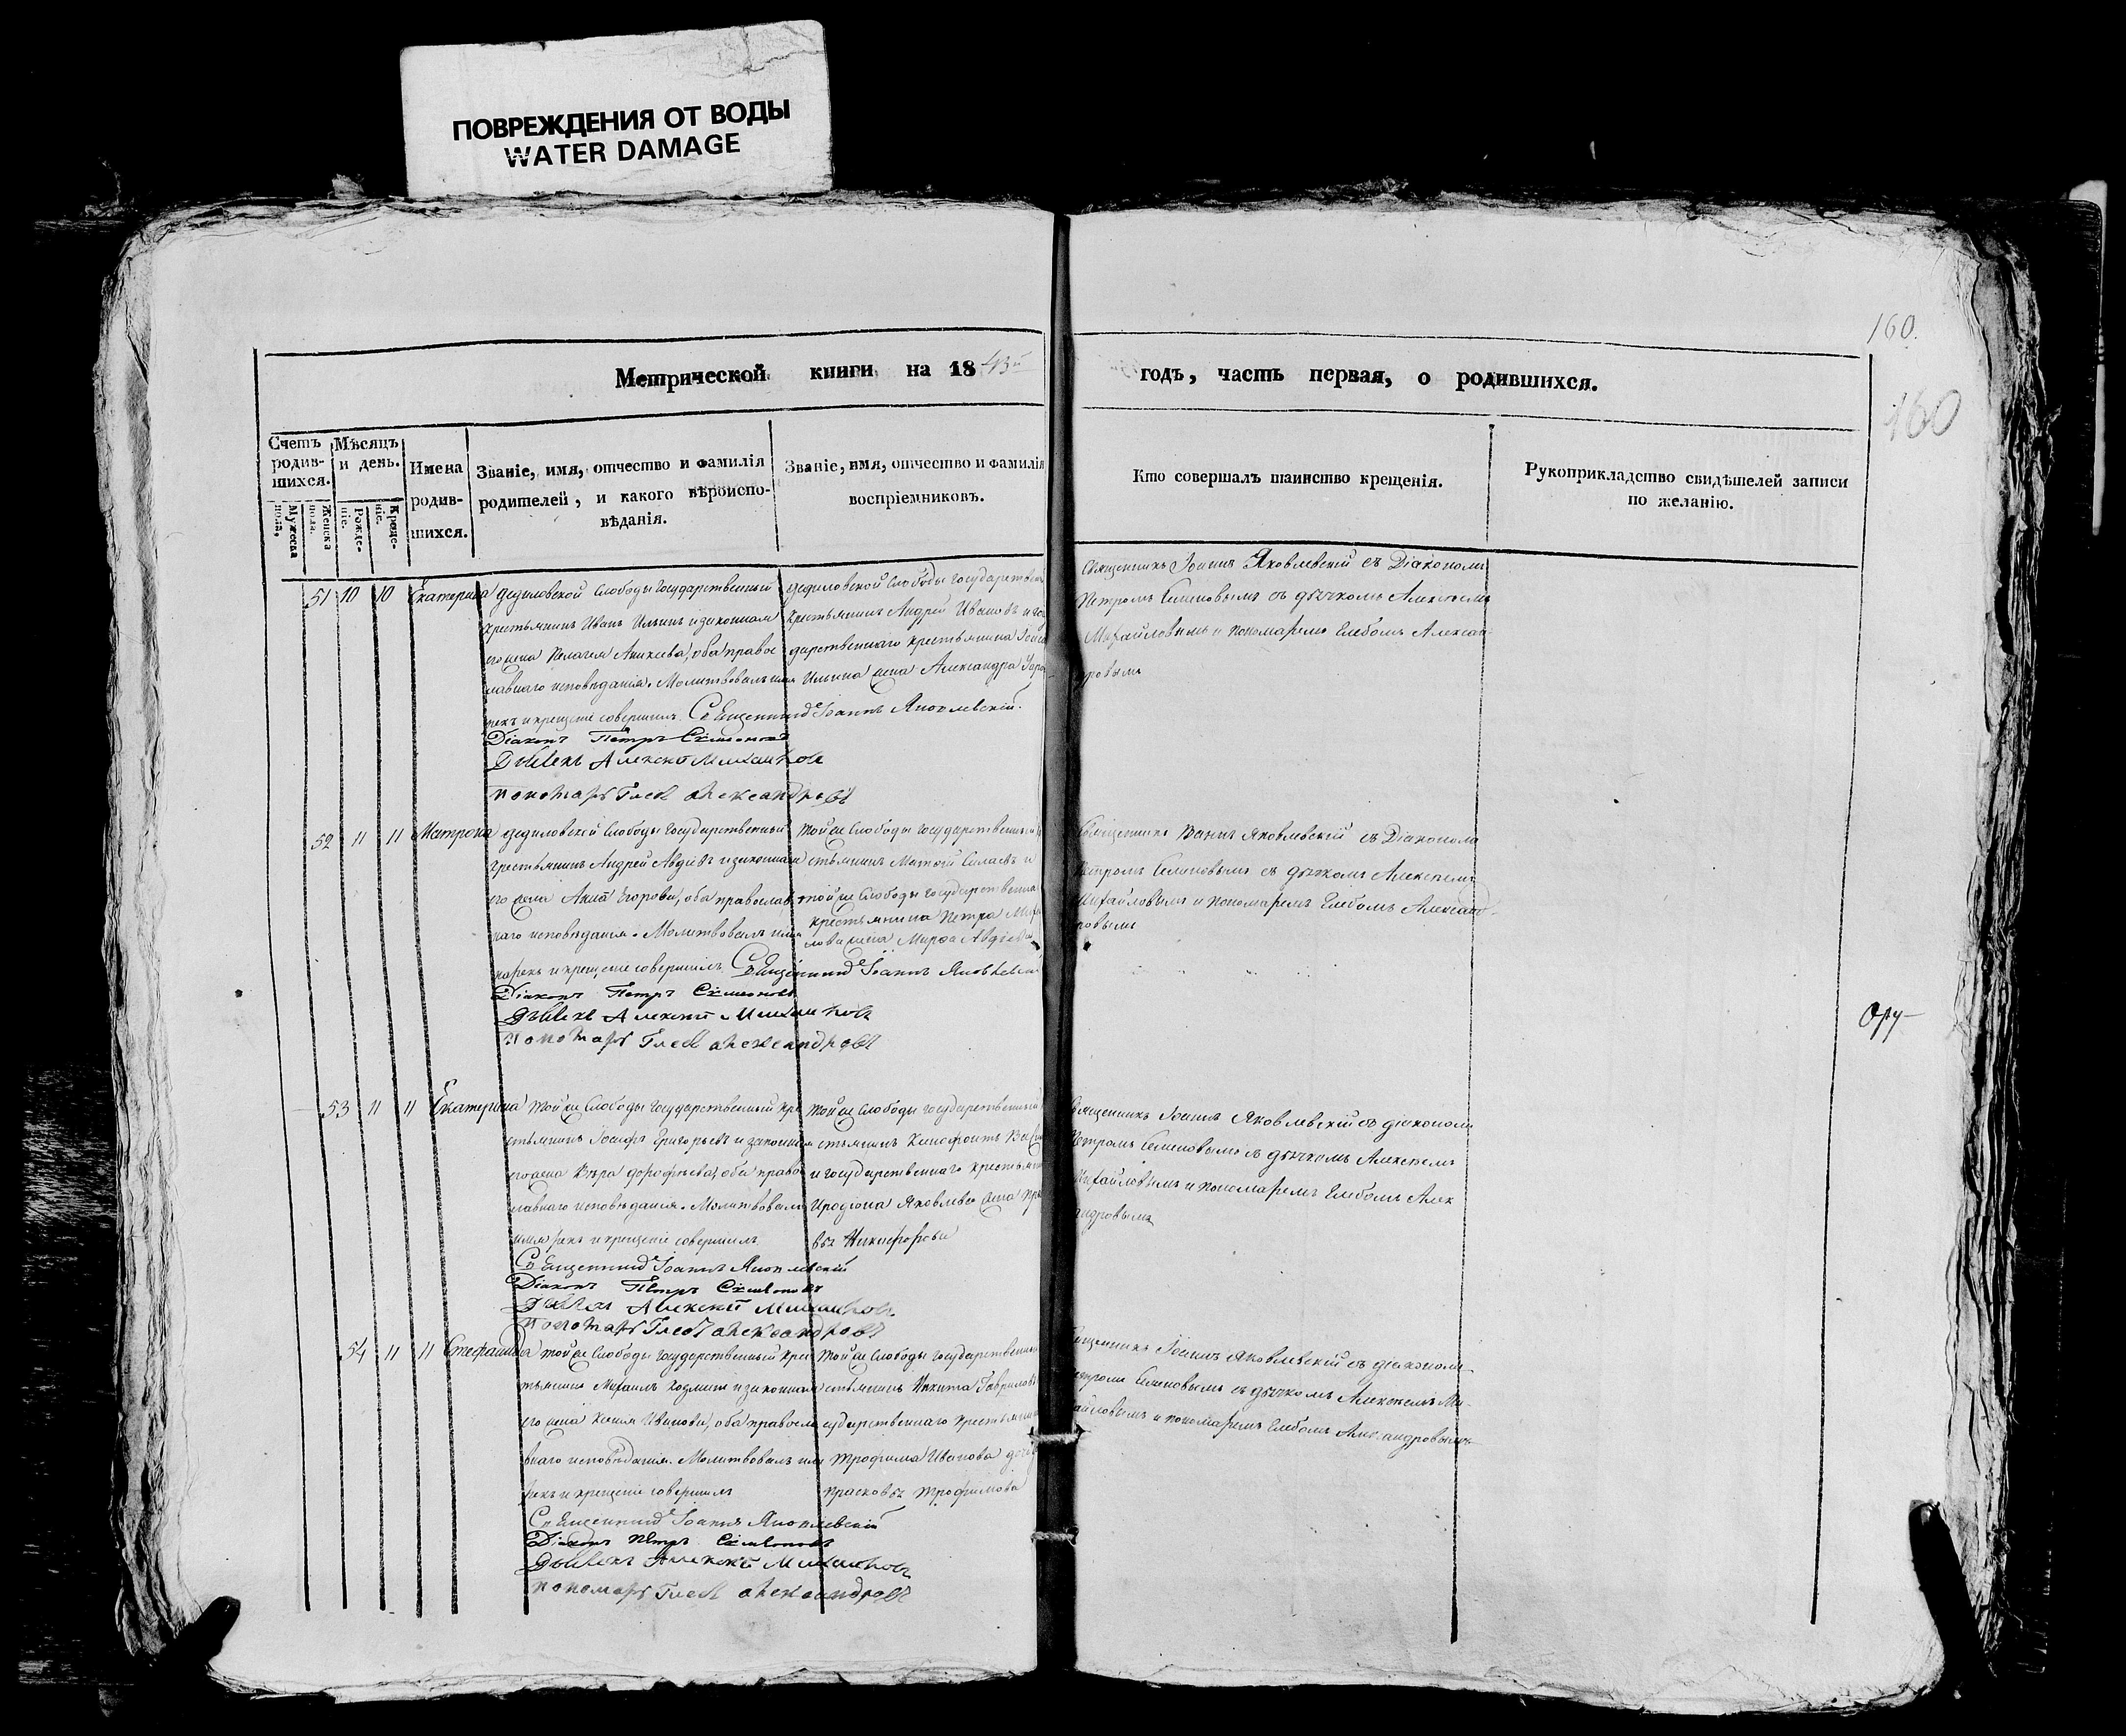 ПОВРЕЖДЕНИЯ ОТ ВОДЫ
WATER DAMAGE
160.
160
Метрической книги на 1843й годъ, часть первая, о родившихся.
Счетъ родив-шихся.
Мужеска пола.
Женска пола.
Мѣсяцъ и день.
Рожде-ніе.
Креще-ніе.
Имена родив-шихся.
Званіе, имя, отчество и фамилія
родителей, и какого вѣроиспо-
вѣданія.
Званіе, имя, отчество и фамилія
воспріемниковъ.
Кто совершалъ таинство крещенія.
Рукоприкладство свидѣтелей записи
по желанію.
51 10 10 Екатерина
Дедиловской Слободы Государственный
крестьянинъ Иванъ Ильинъ и законная
его жена Пелагея Аникеева, оба правос
лавнаго исповѣданія. Молитвовалъ имя
рекъ и крещеніе совершилъ Священникъ Іоаннъ Яковлевскій.
Діаконъ Петръ Симеоновъ
Дьячекъ Алексѣй Михаиловъ
пономарь Глебъ Александровъ
Дедиловской Слободы государствен
крестьянинъ Андрей Ивановъ и госу
дарственнаго крестьянина
Ильина жена Александра
Священникъ Іоаннъ Яковлевскій съ Діакономъ
Петромъ Семеновымъ съ дьячкомъ Алексѣемъ
Михайловымъ и пономаремъ Глебомъ Алексан-
дровымъ
52 11 11 Матрона
Дедиловской Слободы Государственный
крестьянинъ Андрей Авдѣевъ и законная
его жена Анна Егорова, оба православ
наго исповѣданія. Молитвовалъ имя
нарекъ и крещеніе совершилъ Священникъ Іоаннъ Яковлевскій
Діаконъ Петръ Симеоновъ
Дьячекъ Алексѣй Михаиловъ
пономарь Глебъ Александровъ
той же Слободы Государственный
стьянинъ Матвѣй и
той же Слободы Государственна
крестьянина Петра
жена Марфа Авдѣева
Священникъ Іоаннъ Яковлевскій съ Діакономъ
Петромъ Семеновымъ съ дьячкомъ Алексѣемъ
Михайловымъ и пономаремъ Глебомъ Александ-
ровымъ
Ору-
53 11 11 Екатерина
той же Слободы Государственный кре
стьянинъ Іосифъ Григорьевъ и законная
его жена Вѣра Дорофѣева, оба правос
лавнаго исповѣданія. Молитвовалъ
имя рекъ и крещеніе совершилъ
Священникъ Іоаннъ Яковлевскій
Діаконъ Петръ Симеоновъ
Дьячекъ Алексѣй Михаиловъ
пономарь Глебъ Александровъ
той же Слободы государственный
стьянинъ Ксенофонтъ
и государственнаго крестьян
Иродіона Яковлева жена
Никифорова
Священникъ Іоаннъ Яковлевскій съ діакономъ
Петромъ Семеновымъ съ дьячкомъ Алексѣемъ
Михайловымъ и пономаремъ Глебомъ Алек
андровымъ
54 11 11 Стефанида
той же Слободы Государственный крес
тьянинъ Михаилъ и законная
его жена Ксенія Иванова, оба правосла
внаго исповѣданія. Молитвовалъ имя
рекъ и крещеніе совершилъ
Священникъ Іоаннъ Яковлевскій
Діаконъ Петръ Симеоновъ
Дьячекъ Алексѣй Михаиловъ
пономарь Глебъ Александровъ
той же Слободы Государственный
стьянинъ Никита Гаврилов
сударственнаго крестьянина
Трофима Иванова дочь
Прасковья Трофимова
Священникъ Іоаннъ Яковлевскій съ діакономъ
Петромъ Семеновымъ съ дьячкомъ Алексѣемъ Ми-
хайловымъ и пономаремъ Глебомъ Александровымъ